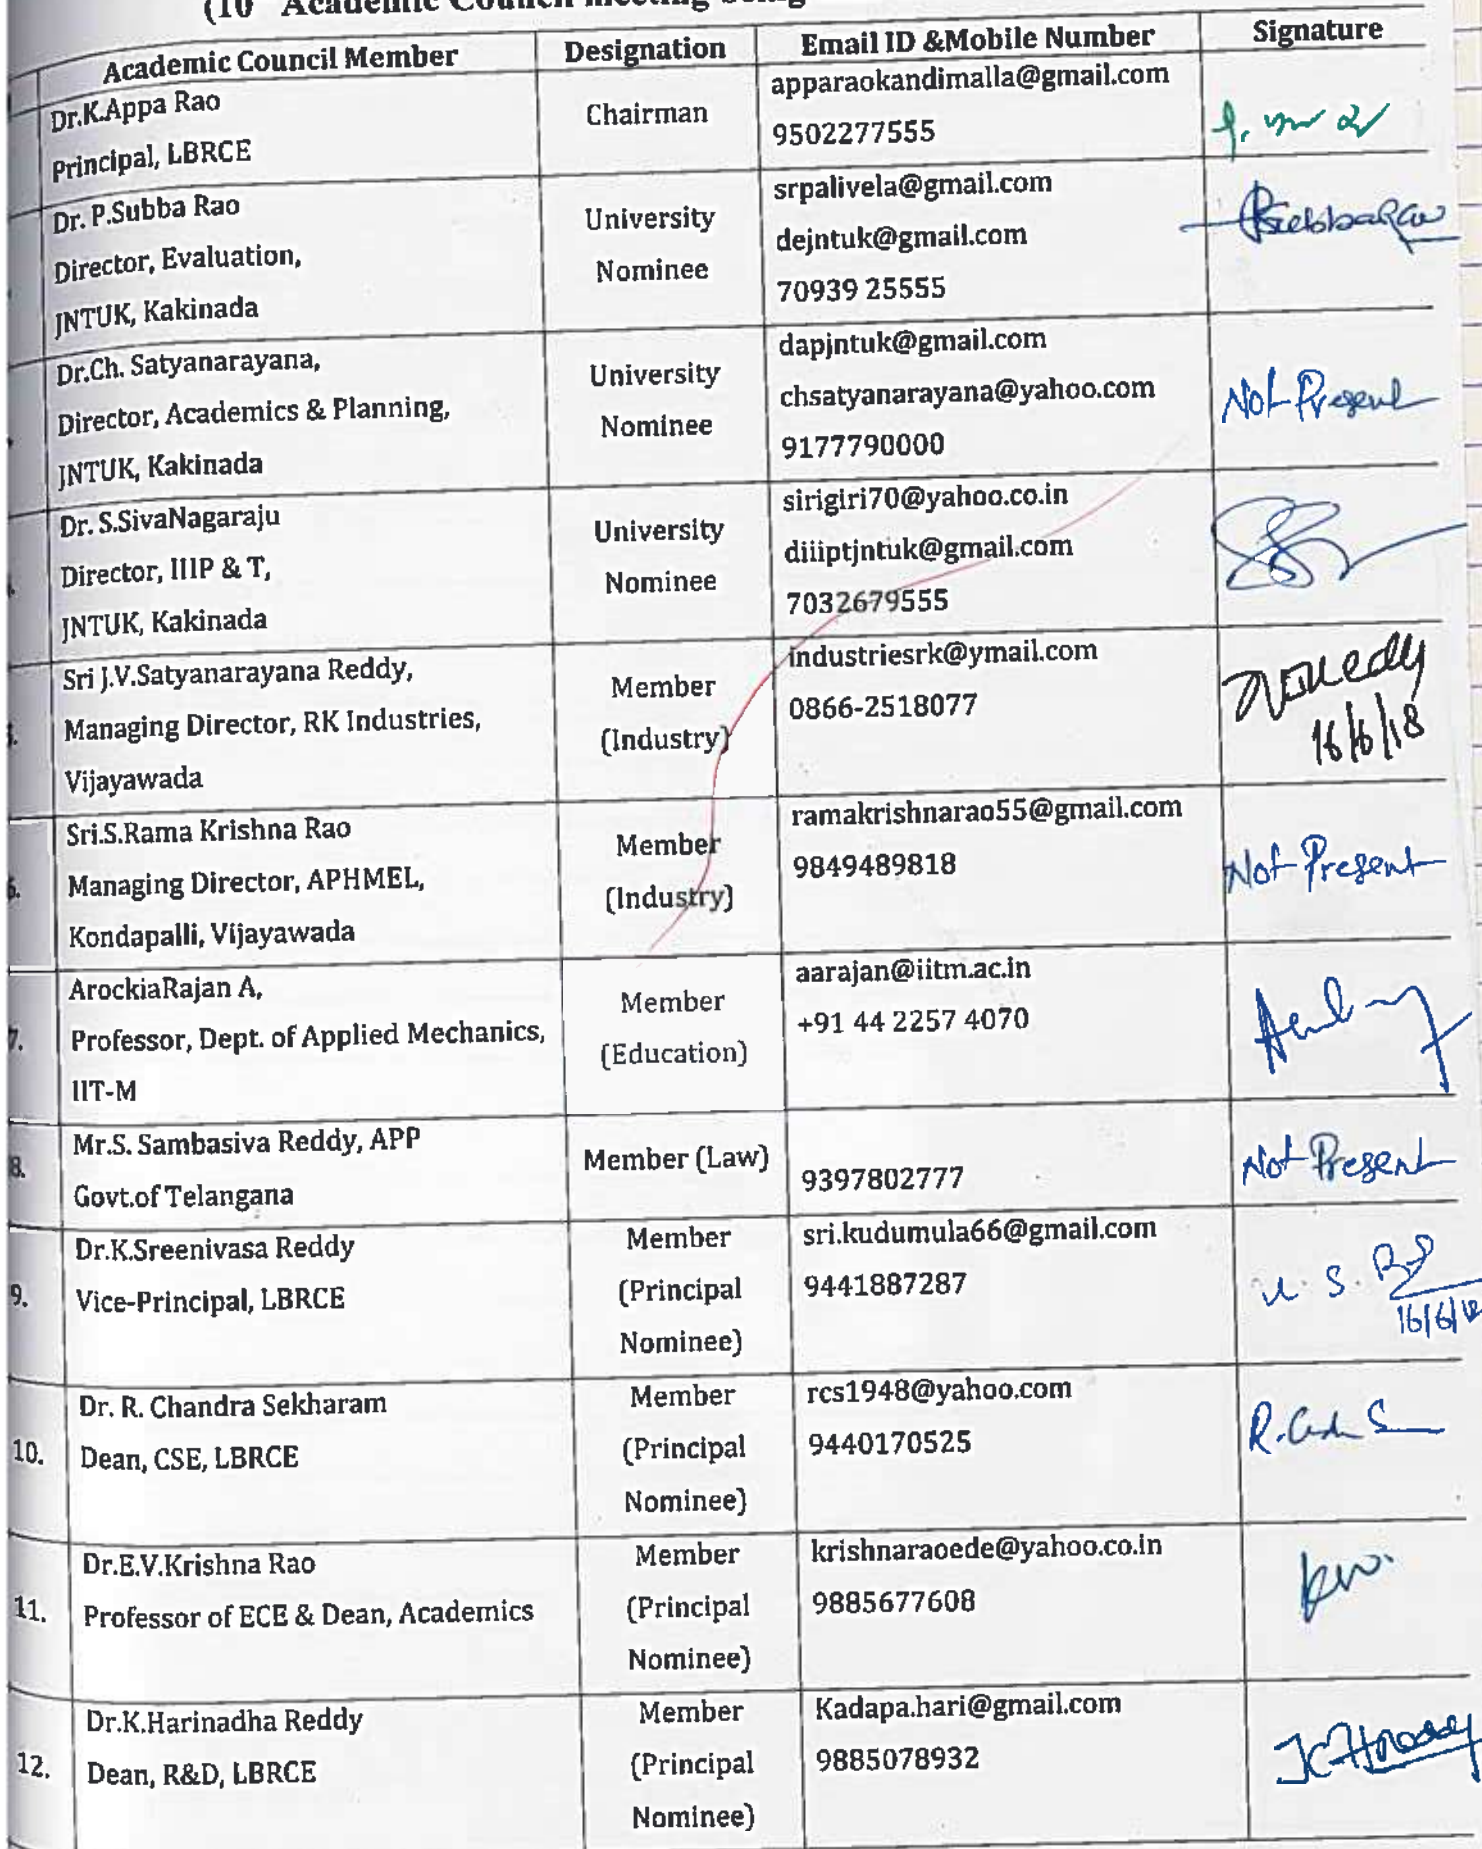 (10 Academic Council meeting being
Academic Council Member Designation Email ID &Mobile Number Signature
Dr.K.Appa Rao
Principal, LBRCE
Chairman
apparaokandimalla@gmail.com
9502277555
Dr. P.Subba Rao
Director, Evaluation,
JNTUK, Kakinada
University
Nominee
srpalivela@gmail.com
dejntuk@gmail.com
70939 25555
PSubbaRao
Dr.Ch. Satyanarayana,
Director, Academics & Planning,
JNTUK, Kakinada
University
Nominee
dapjntuk@gmail.com
chsatyanarayana@yahoo.com
9177790000
Not Present
Dr. S.SivaNagaraju
Director, IIIP & T,
JNTUK, Kakinada
University
Nominee
sirigiri70@yahoo.co.in
diiiptjntuk@gmail.com
7032679555
5.
Sri J.V.Satyanarayana Reddy,
Managing Director, RK Industries,
Vijayawada
Member
(Industry)
industriesrk@ymail.com
0866-2518077
16/6/18
6.
Sri.S.Rama Krishna Rao
Managing Director, APHMEL,
Kondapalli, Vijayawada
Member
(Industry)
ramakrishnarao55@gmail.com
9849489818
Not Present
7.
ArockiaRajan A,
Professor, Dept. of Applied Mechanics,
IIT-M
Member
(Education)
aarajan@iitm.ac.in
+91 44 2257 4070
8.
Mr.S. Sambasiva Reddy, APP
Govt.of Telangana
Member (Law)
9397802777
Not Present
9.
Dr.K.Sreenivasa Reddy
Vice-Principal, LBRCE
Member
(Principal
Nominee)
sri.kudumula66@gmail.com
9441887287
16/6/18
10.
Dr. R. Chandra Sekharam
Dean, CSE, LBRCE
Member
(Principal
Nominee)
rcs1948@yahoo.com
9440170525
11.
Dr.E.V.Krishna Rao
Professor of ECE & Dean, Academics
Member
(Principal
Nominee)
krishnaraoede@yahoo.co.in
9885677608
12.
Dr.K.Harinadha Reddy
Dean, R&D, LBRCE
Member
(Principal
Nominee)
Kadapa.hari@gmail.com
9885078932